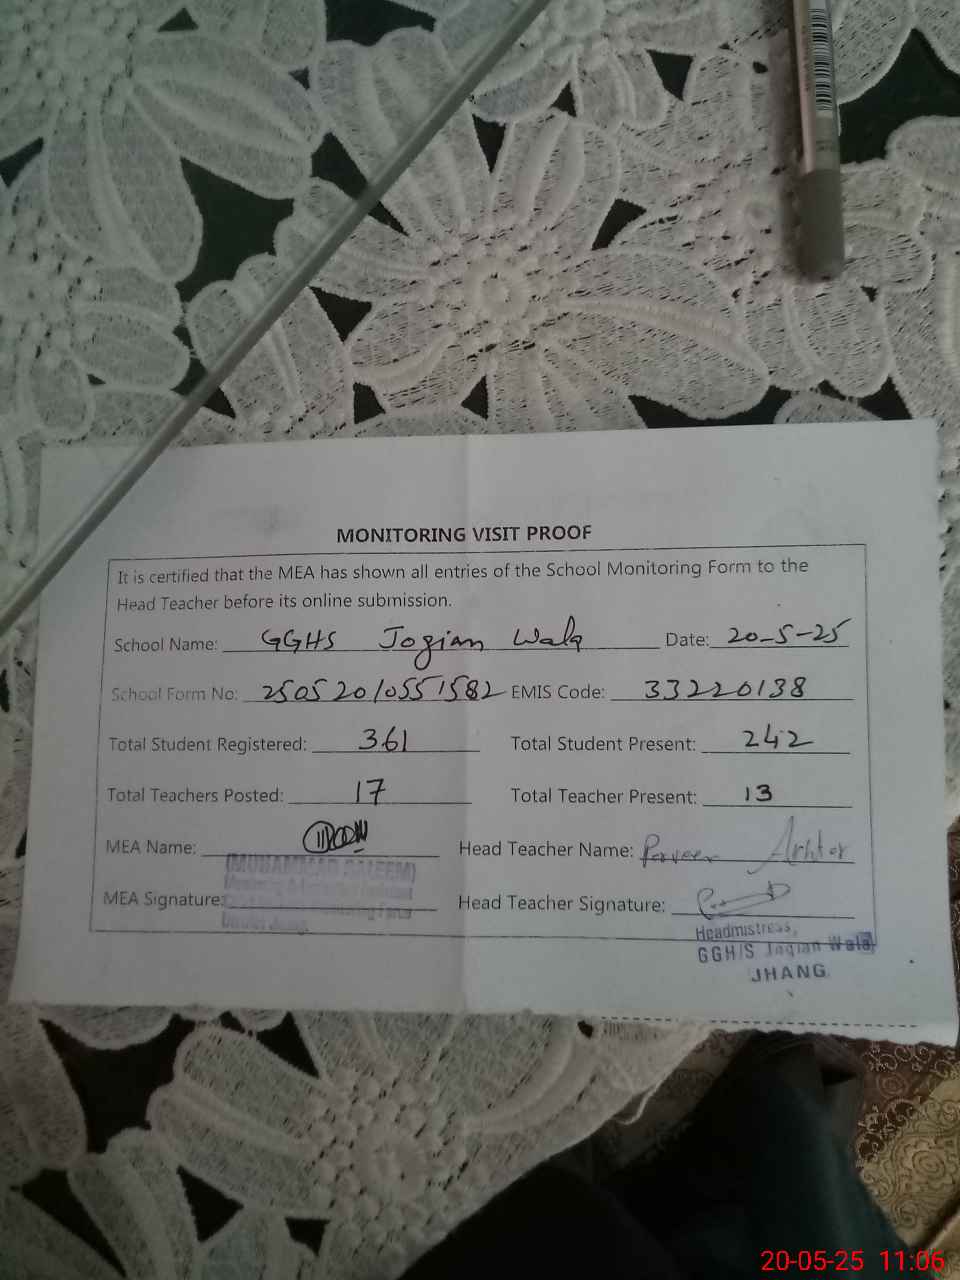 MONITORING VISIT PROOF
It is certified that the MEA has shown all entries of the School Monitoring Form to the
Head Teacher before its online submission.
School Name: GGHS Jogian Wala Date: 20-5-25
School Form No: 25052010551582 EMIS Code: 33220138
Total Student Registered: 361 Total Student Present: 242
Total Teachers Posted: 17 Total Teacher Present: 13
MEA Name: Head Teacher Name: Parveen Akhtar
(MUHAMMAD SALEEM)
MEA Signature: Head Teacher Signature:
Headmistress,
GGH/S Jogian Wala
JHANG
20-05-25 11:06